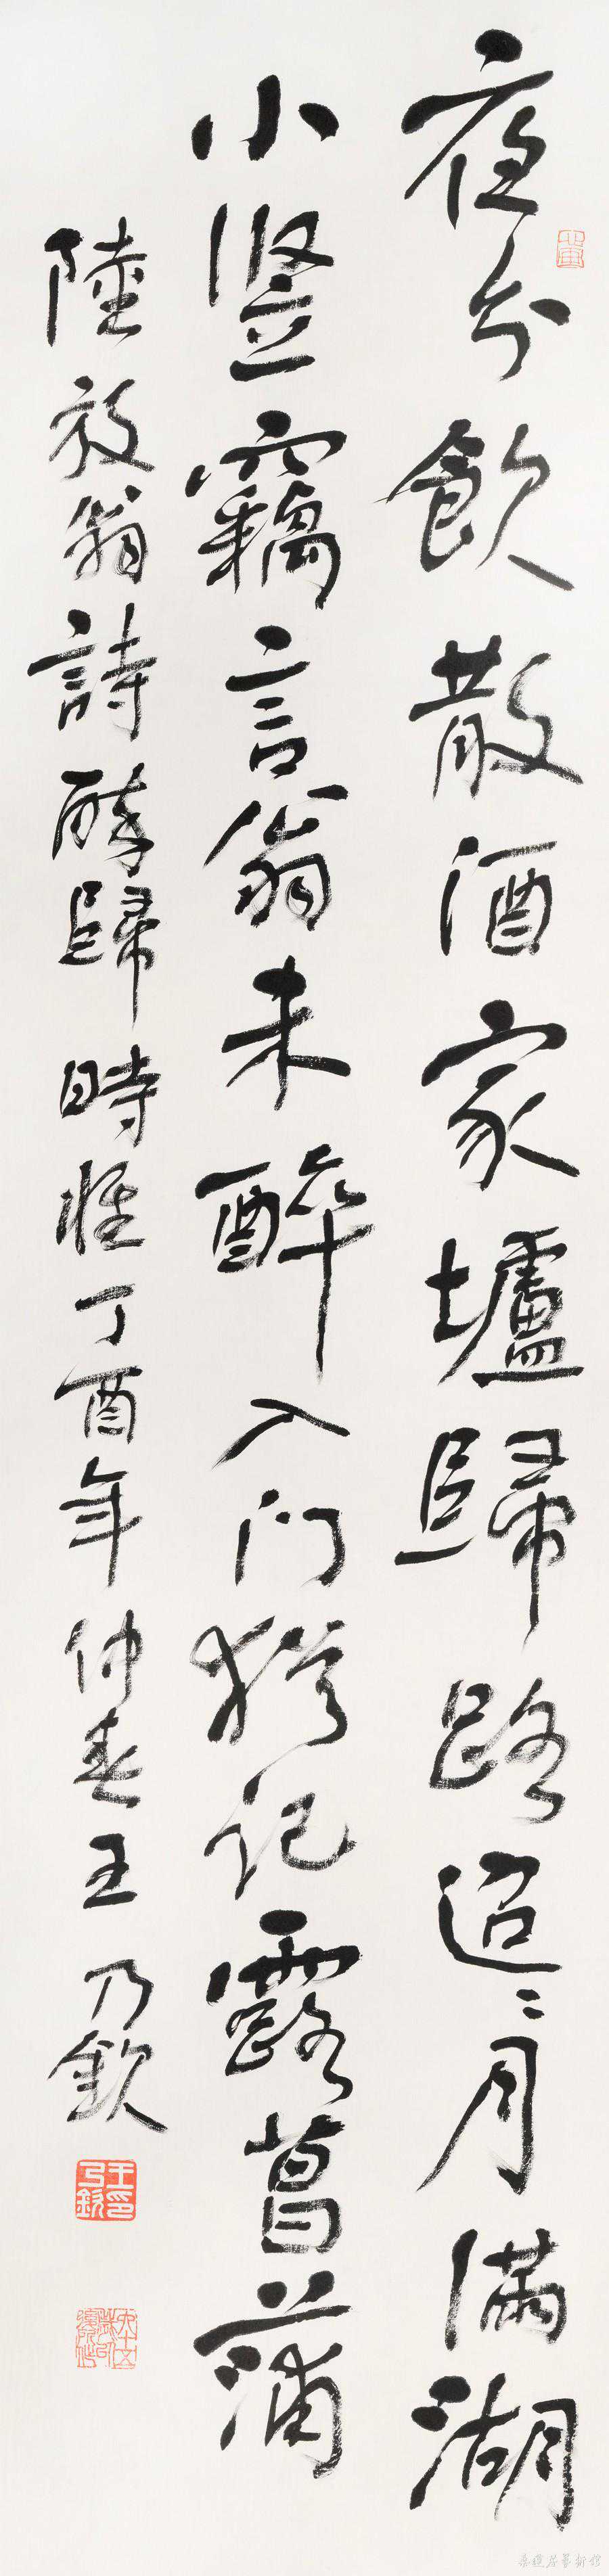 夜分飲散酒家壚歸路迢〻月滿湖
小豎竊言翁未醉入门猶記露菖蒲
陸放翁詩醉歸時惟丁酉年仲春王乃欽
王乃欽印